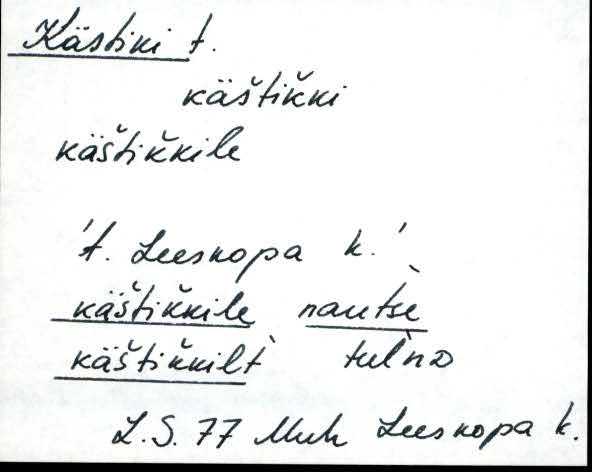 Kästiki t.
käštik̆ki
käštik̆kile
't. Leeskopa k.'
käštik̆kile nautsè
käštik̆kilt̀ tul̀nɒ
L. S. 77 Muh Leeskopa k.